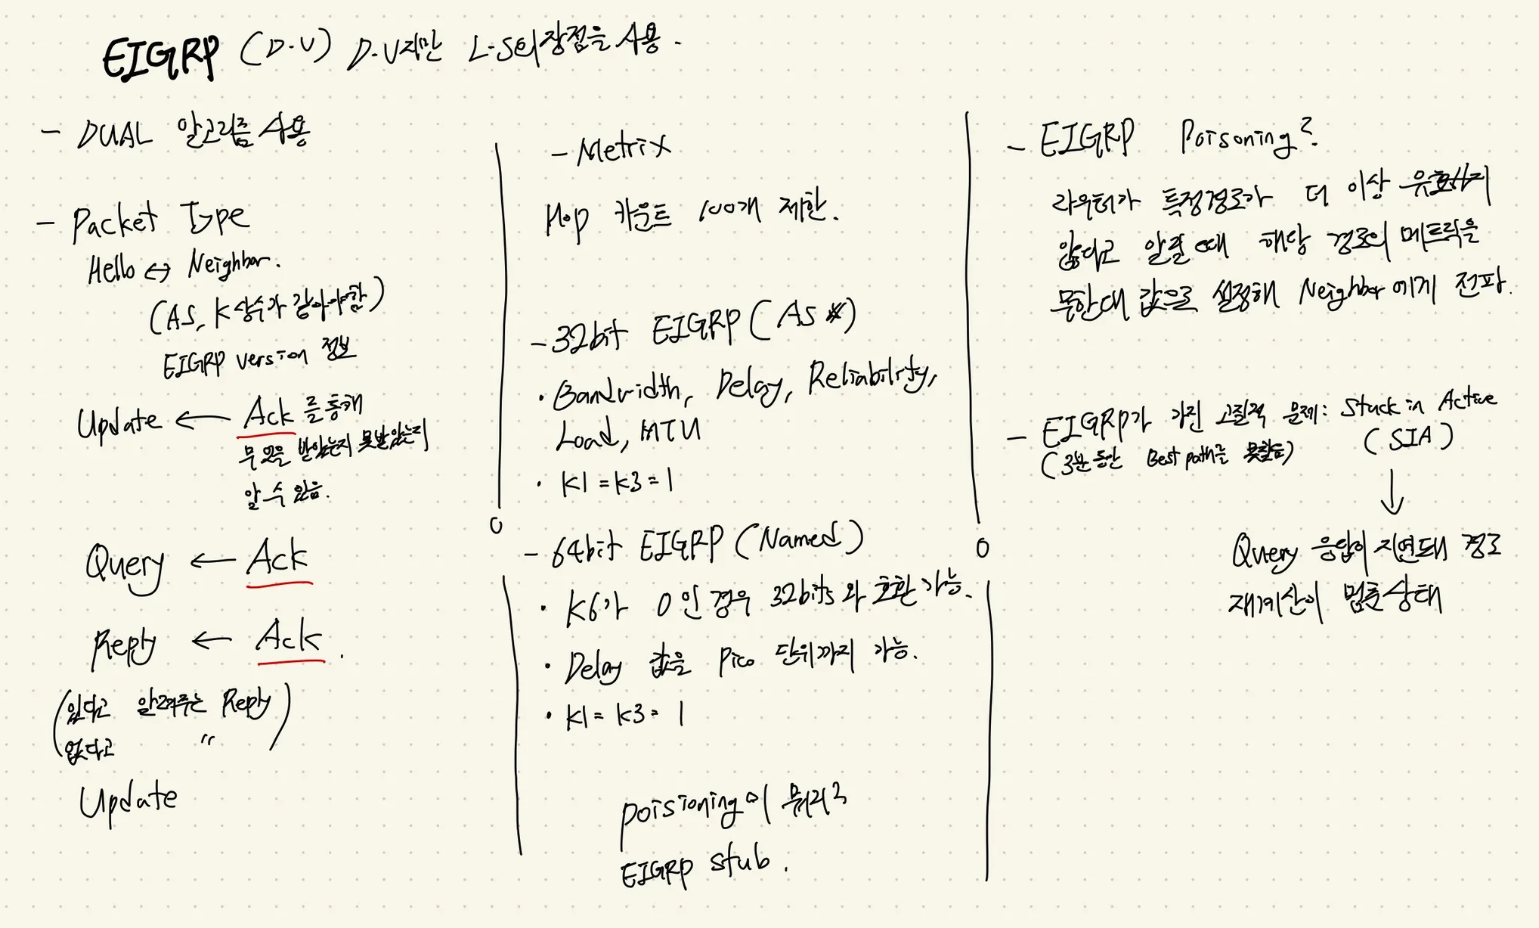 EIGRP (D·V) D·V지만 L-S의 장점을 사용.
- DUAL 알고리즘 사용
- Packet Type
Hello ↔ Neighbor.
(AS, K상수가 같아야함)
EIGRP version 정보
Update ← Ack 를 통해
무엇을 받았는지 못받았는지
알 수 있음.
Query ← Ack
Reply ← Ack.
(있다고 알려주는 Reply
없다고 〃)
Update
- Metrix
Hop 카운트 100개 제한.
- 32bit EIGRP (AS #)
· Bandwidth, Delay, Reliability,
Load, MTU
· K1 = K3 = 1
- 64bit EIGRP (Named)
· K6가 0인 경우 32bits와 호환 가능.
· Delay 값을 Pico 단위까지 가능.
· K1 = K3 = 1
poisioning이 뭐지?
EIGRP stub.
- EIGRP Poisoning?
라우터가 특정경로가 더 이상 유효하지
않다고 알릴 때 해당 경로의 메트릭을
무한대 값으로 설정해 Neighbor에게 전파.
- EIGRP가 가진 고질적 문제: Stuck in Active
(3분 동안 Best path를 못찾음) (SIA)
↓
Query 응답이 지연돼 경로
재계산이 멈춘 상태